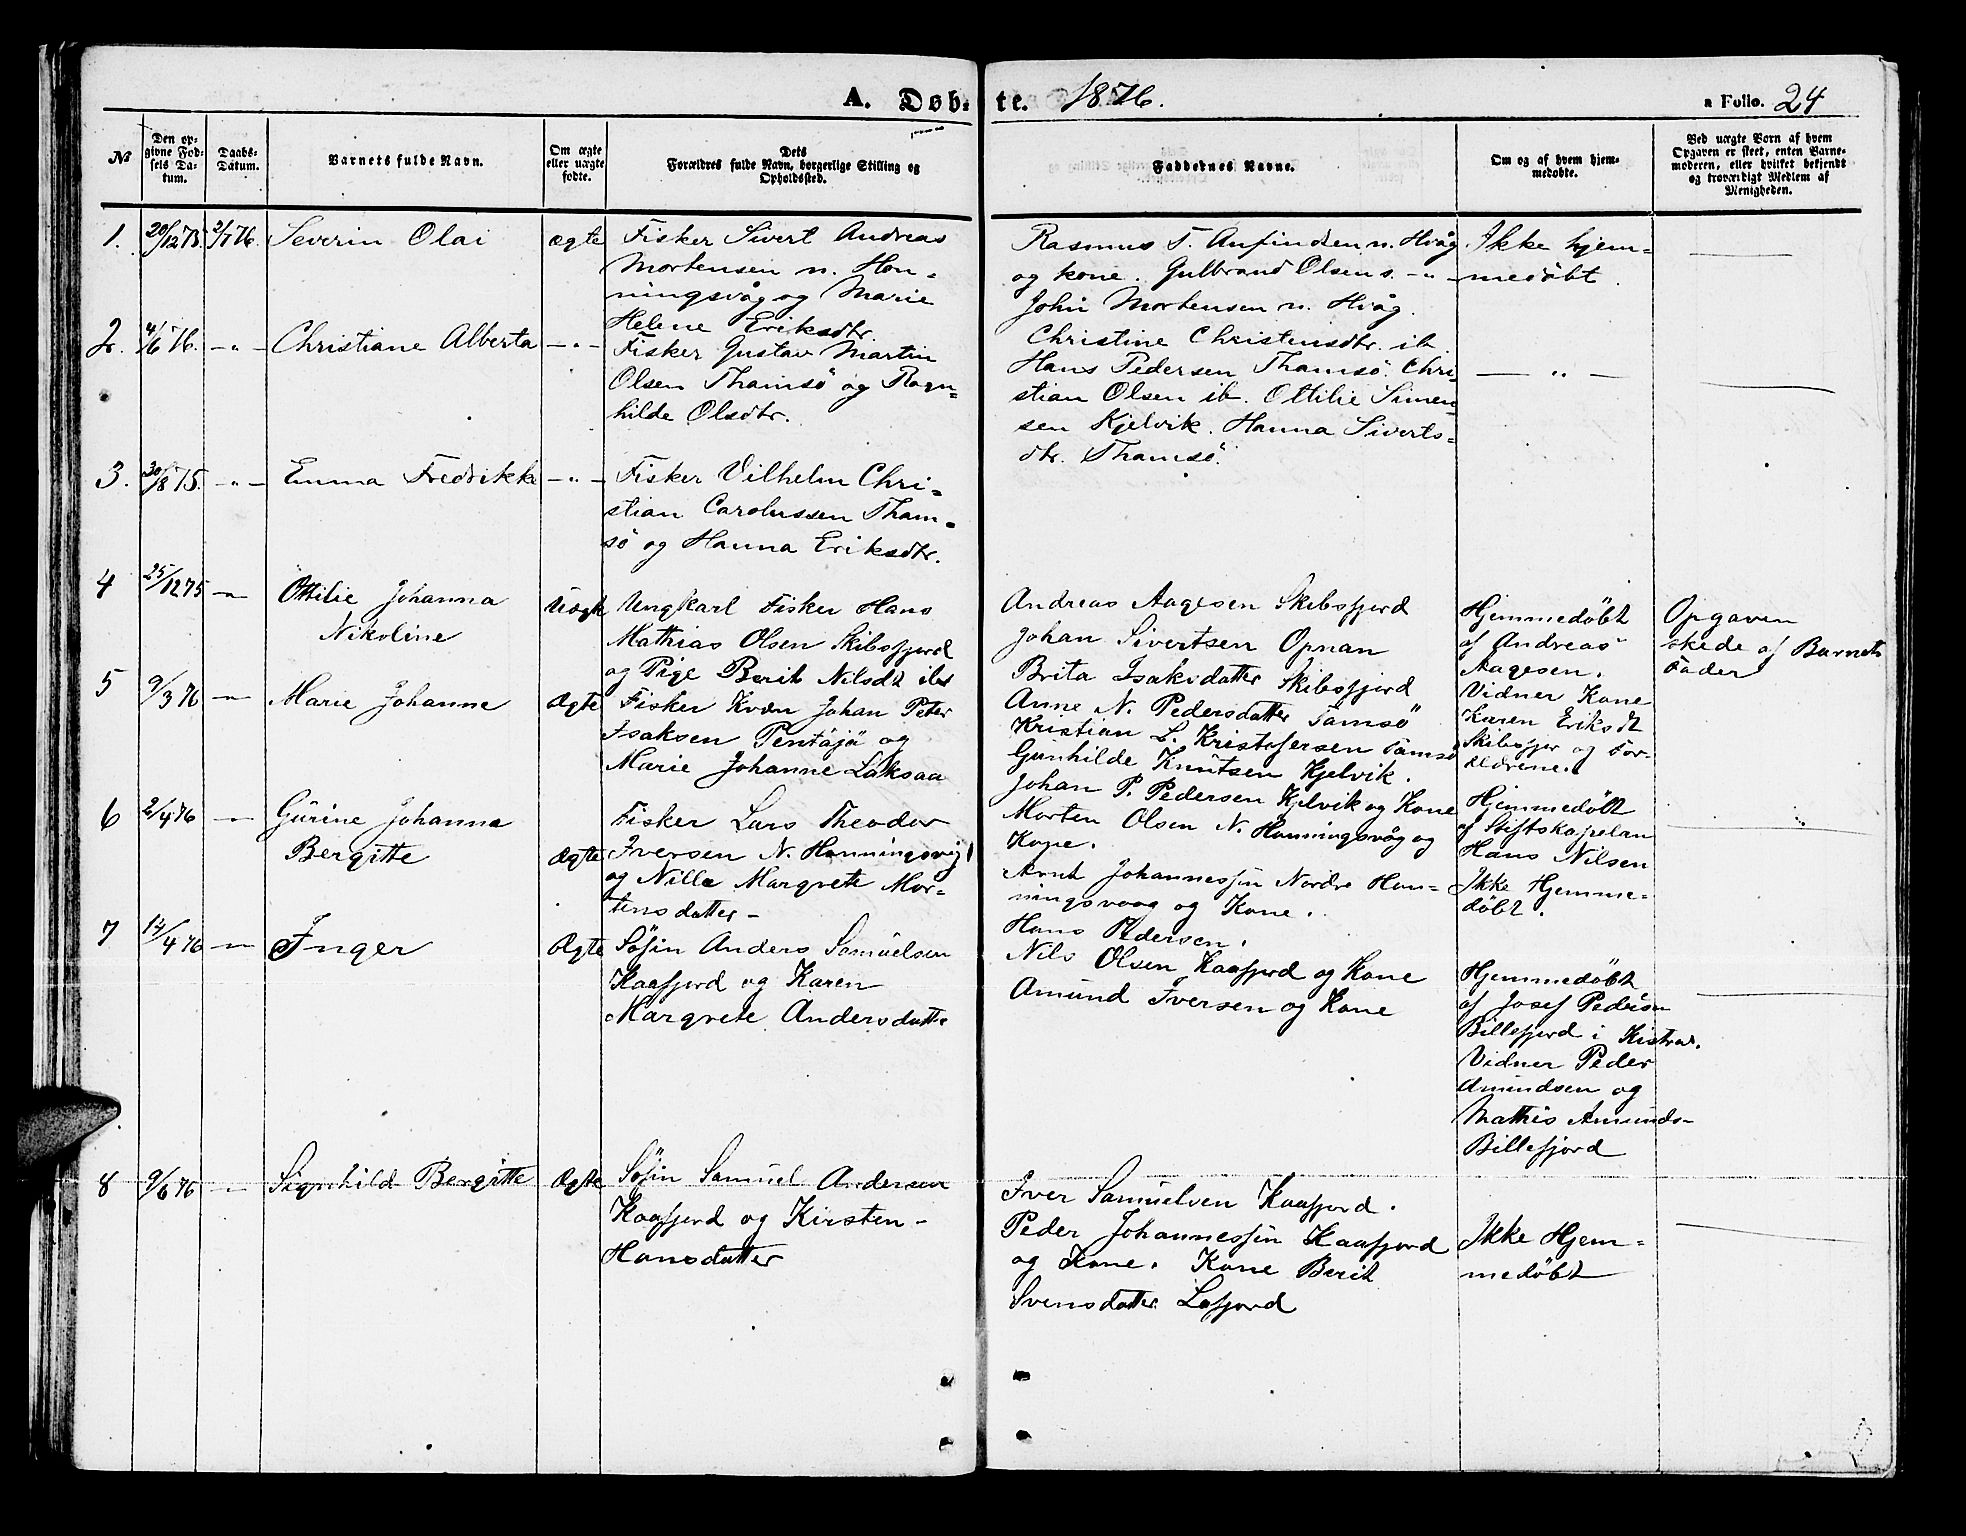 A. Døbte. 1876.
a Folio. 24
No
Den opgivne Fodsels Datum.
Daabs-Datum.
Barnets fulde Navn.
Om ægte eller uægte fodte.
Dets Forældres fulde Navn, borgerlige Stilling og Opholdssted.
Faddernes Navne.
Om og af hvem hjemmedobte.
Ved uægte Born af hvem Opgaven er skeet, enten Barnemoderen, eller hvilket bekjendt og troværdigt Medlem af Menigheden.
1. 20/12 75. 2/7 76. Severin Olai ægte
Fisker Sivert Andreas
Mortensen n. Hon-
ningsvåg og Marie
Helene Eriksdtr.
Rasmus T. Anfindsen n. Hvåg
og kone. Gulbrand Olsen s. -"-
John Mortensen n. Hvåg.
Christine Christensdtr. ib
Ikke hjem-
medøbt.
2. 4/6 76. -"- Christiane Alberta -"-
Fisker Gustav Martin
Olsen Thamsö og Ragn-
hilde Olsdtr.
Hans Pedersen Thamsö. Chri-
stian Olsen ib. Ottilie Simen-
sen Kjelvik. Hanna Siverts-
dtr. Thamsö.
- " -
3. 30/8 75. -"- Emma Fredrikke -"-
Fisker Vilhelm Chri-
stian Carolussen Tham-
sö og Hanna Eriksdtr.
4 25/12 75 -"- Ottilie Johanna
Nikoline
Uægte
Ungkarl Fisker Hans
Mathias Olsen Skibsfjord
og Pige Berit Nilsdt ibd
Andreas Aagesen Skibsfjord
Johan Sivertsen Opnan
Brita Isaksdatter Skibsfjord
Hjemmedøbt
af Andreas
Aagesen.
Vidner Kone
Karen Eriksdt
Skibsfjor og For-
ældrene.
Opgaven
skede af Barnets
Fader
5 9/3 76 -"- Marie Johanne Ægte
Fisker Kvæn Johan Peter
Isaksen Pentäjä og
Marie Johanne Laksaa
Anne N. Pedersdatter Tamsö
Kristian L. Kristofersen Tamsö
Gunhilde Knutsen Kjelvik.
Johan P. Pedersen Kjelvik og Kone
Hjemmedøbt
af Stiftskapelan
Hans Nilsen
6 2/4 76 -"- Gurine Johanna
Bergitte
Ægte
Fisker Lars Theodor
Iversen N. Honningsvåg
og Nille Margrete Mor-
tensdatter -
Morten Olsen N. Honningsvåg og
Kone.
Arnt Johannessen Nordre Hon-
ningsvaag og Kone.
Hans Pedersen.
Ikke Hjemme-
døbt.
7 14/4 76 -"- Inger Ægte
Søfin Anders Samuelsen
Kaafjord og Karen
Margrete Andersdatte
Nils Olsen Kaafjord og Kone
Amund Iversen og Kone
Hjemmedøbt
af Josef Pedersen
Billefjord i Kistra.
Vidner Peder
Amundsen og
Mathis Amunds-
Billefjord
8 9/6 76 -"- Signhild Bergitte Ægte
Søfin Samuel Andersen
Kaafjord og Kirsten
Hansdatter
Iver Samuelsen Kaafjord.
Peder Johannessen Kaafjord
og Kone. Kone Berit
Svensdatter Lafjord
Ikke Hjem-
medøbt